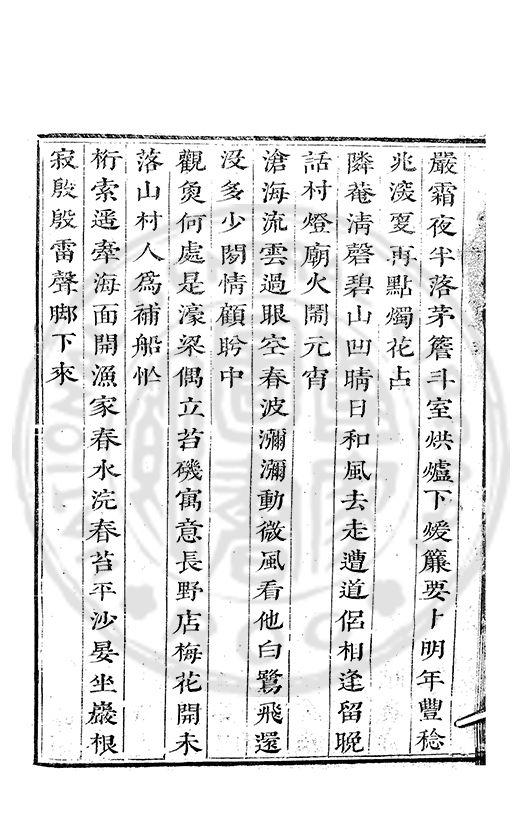 嚴霜夜半落茅簷斗室烘爐下煖簾要卜明年豐稔
兆深夏再點燭花占
隣菴淸磬碧山凹晴日和風去走遭道侶相逢留晩
話村燈廟火鬧元宵
滄海流雲過眼空春波瀰瀰動微風看他白鷺飛還
没多少閒情顧盼中
觀魚何處是濠梁偶立苔磯寓意長野店梅花開未
落山村人爲補船忙
桁索遥牽海面開漁家春水浣春苔平沙晏坐巖根
寂殷殷雷聲脚下來